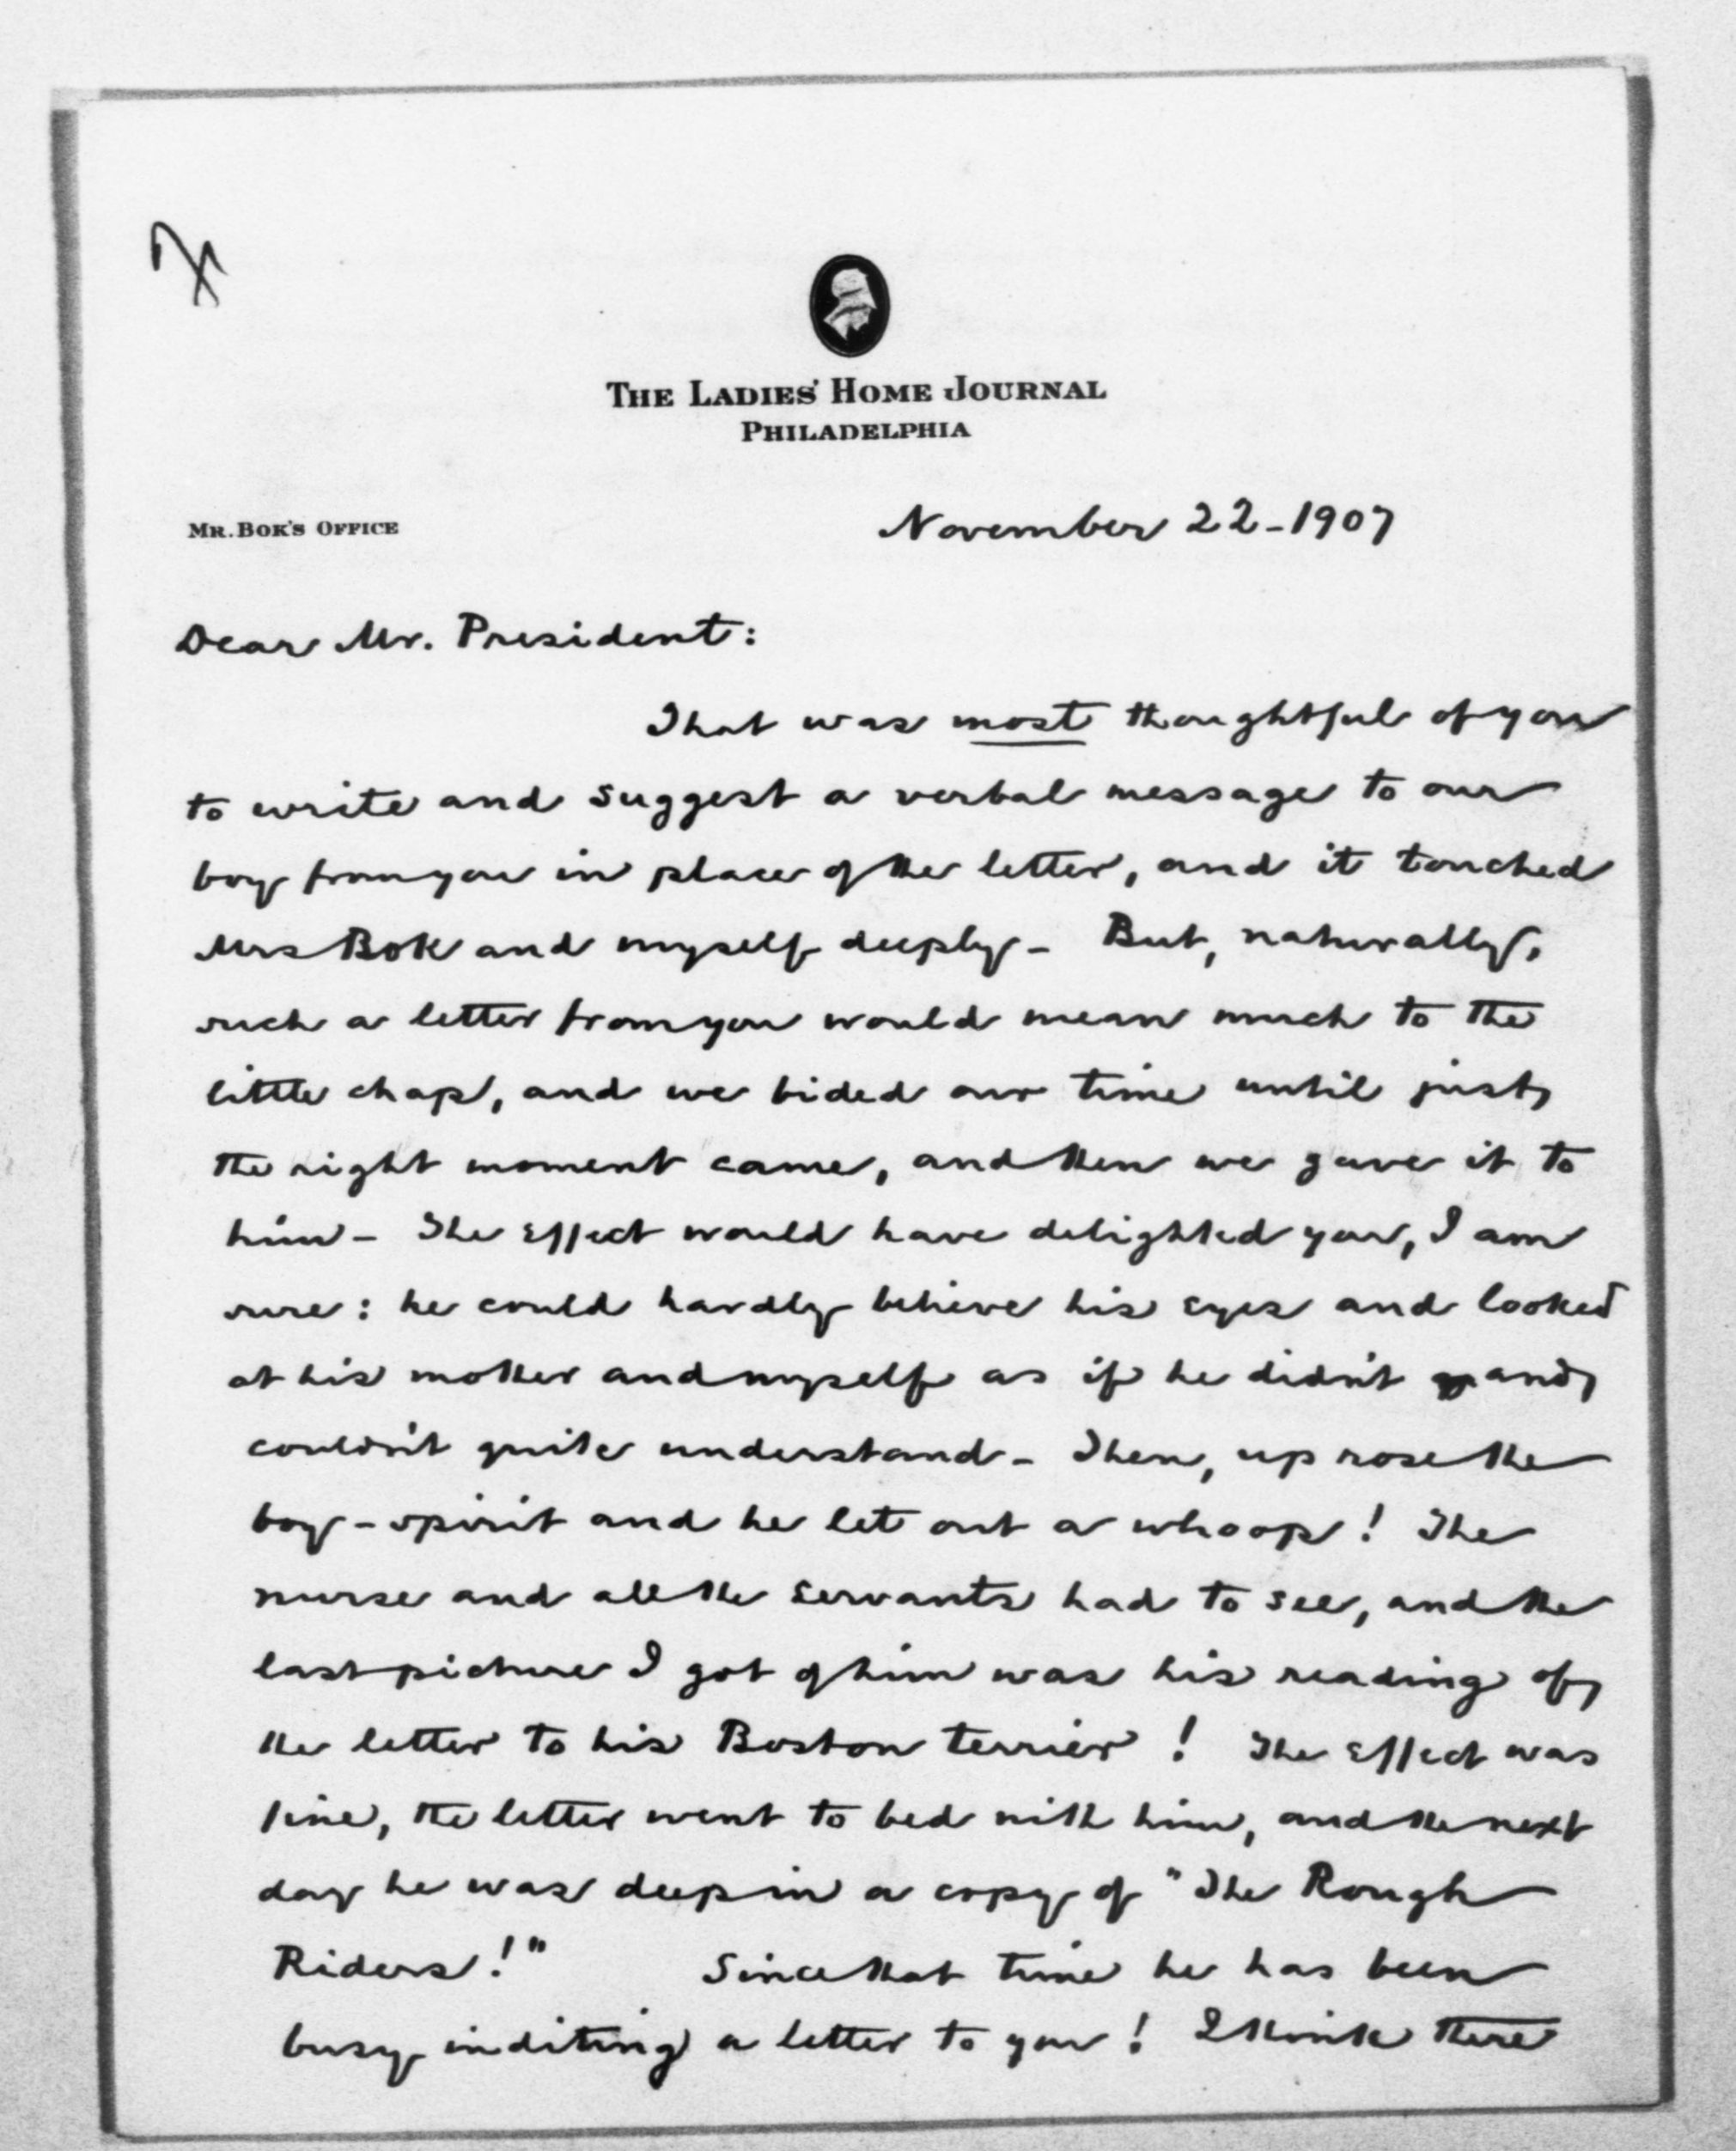 THE LADIES' HOME JOURNAL
PHILADELPHIA
MR. BOK'S OFFICE
November 22-1907
Dear Mr. President:
That was most thoughtful of you
to write and suggest a verbal message to our
boy from you in place of the letter, and it touched
Mrs Bok and myself deeply - But, naturally,
such a letter from you would mean much to the
little chap, and we bided our time until just
the right moment came, and then we gave it to
him - The effect would have delighted you, I am
sure: he could hardly believe his eyes and looked
at his mother and myself as if he didn't and
couldn't quite understand - Then, up rose the
boy-spirit and he let out a whoop! The
nurse and all the servants had to see, and the
last picture I got of him was his reading of
the letter to his Boston terrier! The effect was
fine, the letter went to bed with him, and the next
day he was deep in a copy of "The Rough
Riders!" Since that time he has been
busy inditing a letter to you! I think there